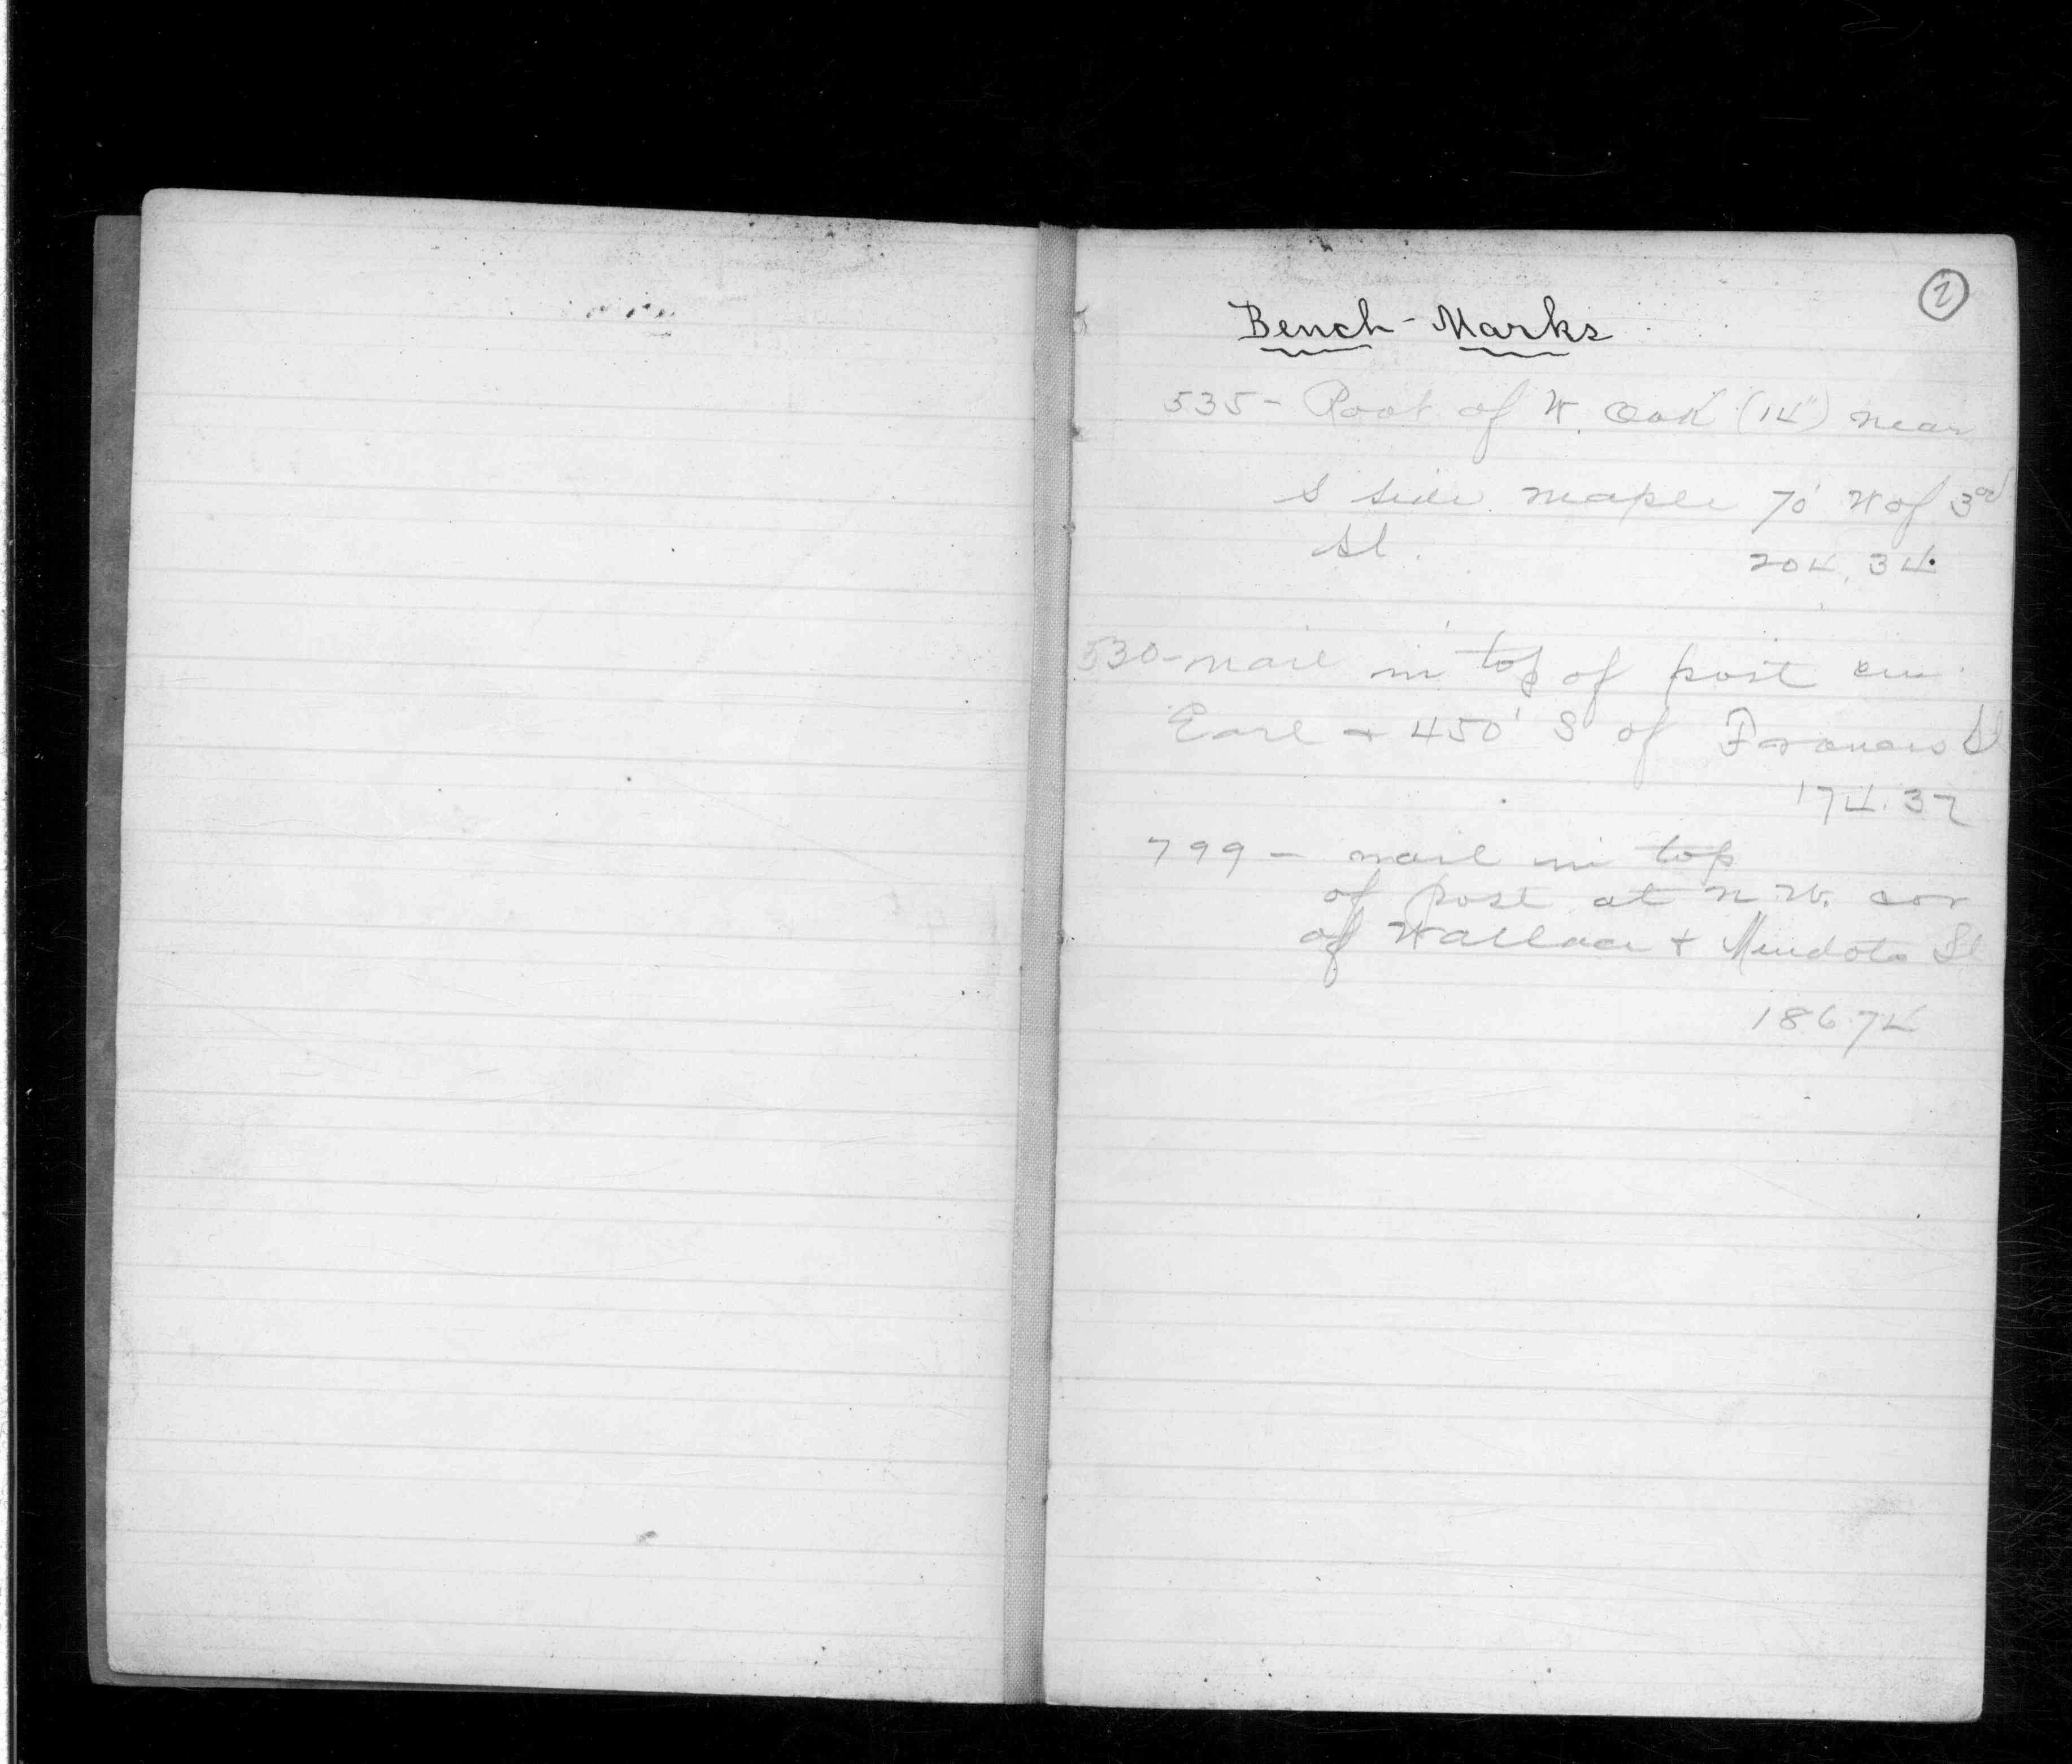 1
Bench-Marks
535 - Root of W. Oak (14") near
S side maple 70' W of 3rd
St. 204.34
530 - nail in top of post on
Earl + 450' S of Francis St
174.37
799 - nail in top
of post at N.W. cor
of Wallace + Mendota St
186.74